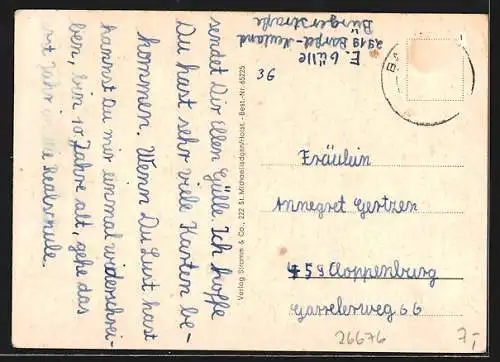 sendet Dir Ellen Gülle. Ich hoffe
Du hast sehr viele Karten be-
kommen. Wenn Du Lust hast
kannst Du mir einmal widerschrei-
ben, bin 10 Jahre alt, gehe das
Jahr die Realschule.
Verlag Stramm & Co., 222 St. Michaelisdonn/Holst. - Best.-Nr. 65225
36
E. Gülle
2919 Barßel-Neuland
Bürgerstraße
Fräulein
Annegret Gertzen
459 Cloppenburg
Garrelerweg 66
26676
7,-